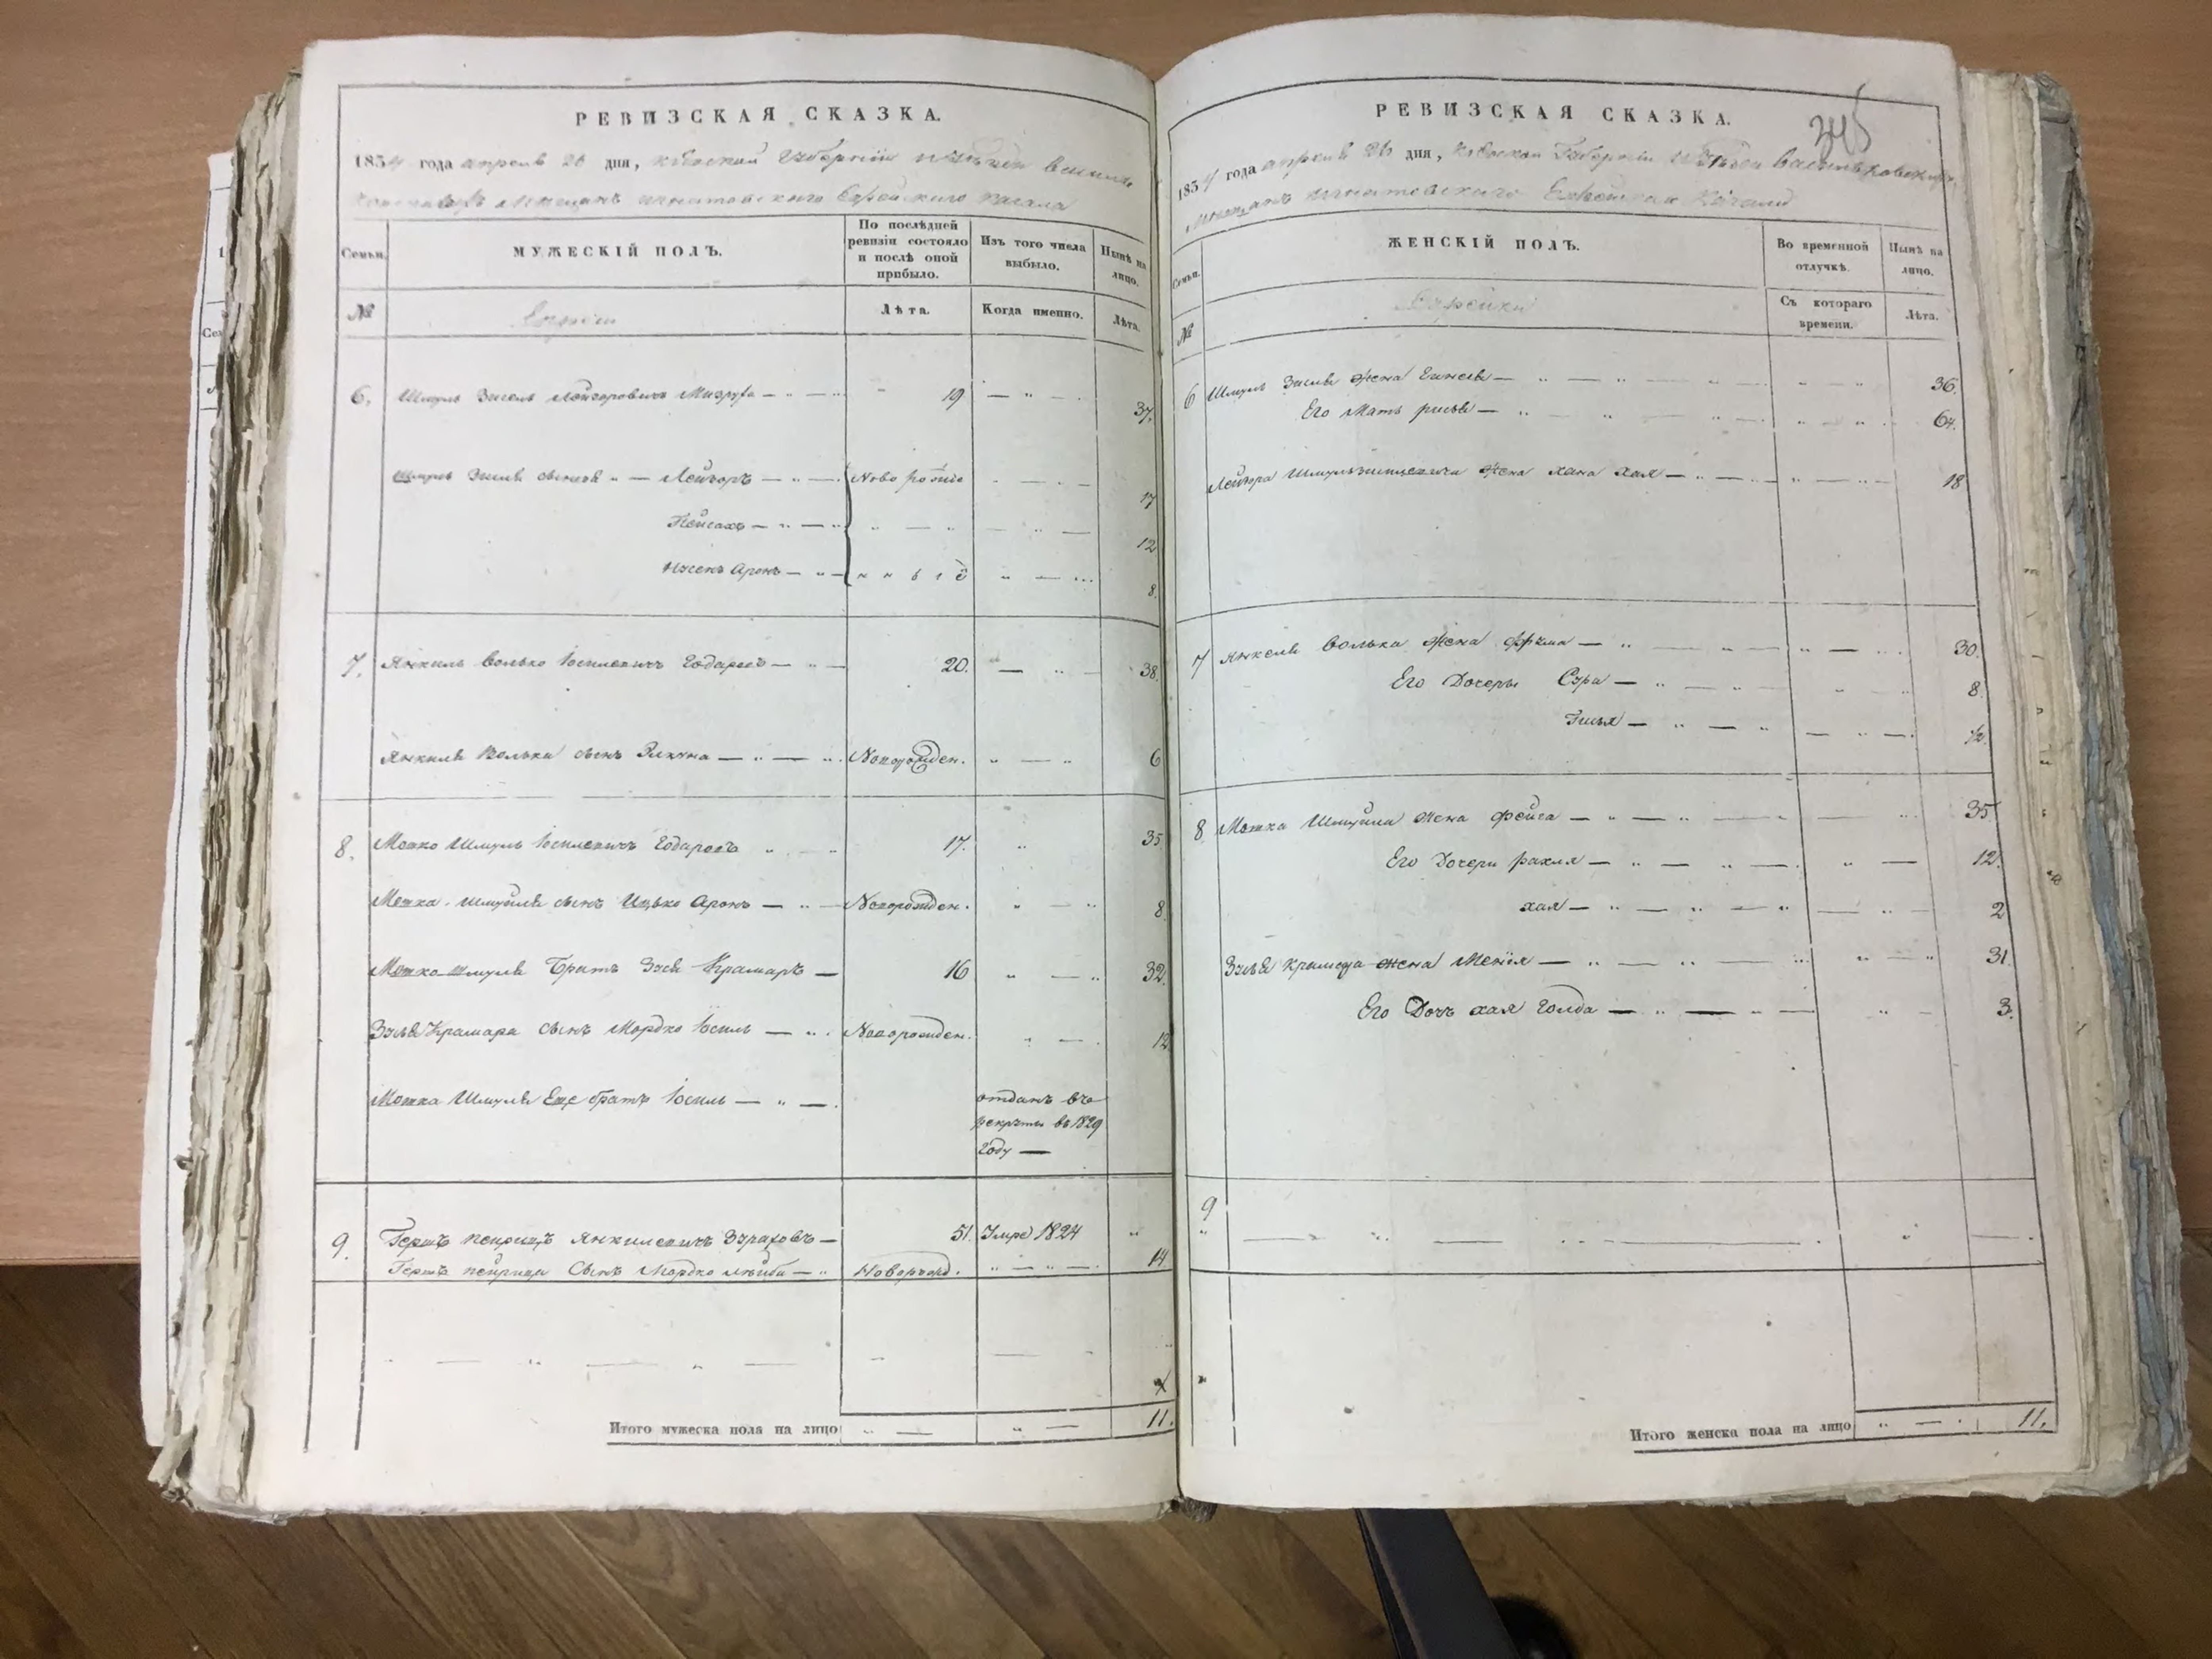 РЕВИЗСКАЯ СКАЗКА.
1854 года апреля 26 дня, Кіевской Губерніи
мещанъ Игнатовскаго Еврейского Кагала
Семьи.
МУЖЕСКІЙ ПОЛЪ.
По послѣдней ревизіи состояло и послѣ оной прибыло.
Изъ того числа выбыло.
Нынѣ на лицо.
№
Евреи
Лѣта.
Когда именно.
Лѣта.
6. Шмуль Зисель Лейзоровичъ 19 37.
Шмуль Зиселя сыновья Лейзоръ Ново рожде 17
Пейсахъ 12
Нусенъ Аронъ нные 8.
7. Янкель Волько Іосиловичъ 20. 38.
Янкеля Волька сынъ Новорожден. 6
8. Мошко Шмуль Іосиловичъ 17. 35
Мошка Шмуйля сынъ Ицько Аронъ Новорожден. 8.
Мошко Шмуля Братъ Зусь Крамаръ 16 32.
Зуся Крамара сынъ Мордко Іосиль Новорожден. 12
Мошка Шмуля Еще братъ Іосиль отданъ въ
рекруты въ 1829
году
9. Гершъ Янкелевичъ 51. Умре 1824
Гершъ сынъ Мордко Лейба Новорожд. 14
Итого мужеска пола на лицо 11.
РЕВИЗСКАЯ СКАЗКА.
345
1854 года апреля 26 дня, Кіевской Губерніи Уѣзда Васильковскаго
мещанъ Игнатовскаго Еврейскаго Кагала
Семьи.
ЖЕНСКІЙ ПОЛЪ.
Во временной отлучкѣ.
Нынѣ на лицо.
№
Еврейки
Съ котораго времени.
Лѣта.
6 Шмуль Зиселя Жена 36.
Его Мать 64.
Лейзора Жена Хана Хая 18
7 Янкеля Волька Жена 30.
Его Дочери Сура 8.
1/2.
8 Мошка Шмуйля Жена Фейга 35
Его Дочери Рахля 12.
Хая 2
Зуся Крамара жена 31.
Его Дочь Хая Голда 3.
9
Итого женска пола на лицо 11.